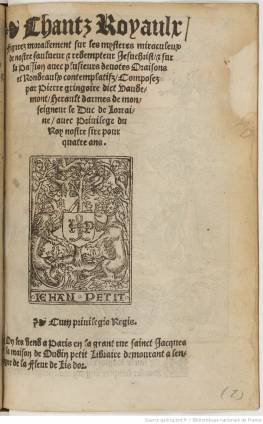 Chantz Royaulx/
figurez morallement sur les mysteres miraculeux
de nostre saulueur & redempteur Jesuchrist/& sur
la Passion auec plusieurs deuotes Oraisons
et Rondeaulx contemplatifz/Composez
par Pierre gringoire dict Vaude-
mont/Herault darmes de mon-
seigneur le Duc de Lorrai-
ne/auec Priuilege du
Roy nostre sire pour
quatre ans.
IEHAN PETIT
Cum priuilegio Regis.
On les vend a Paris en la grant rue sainct Jacques
la maison de Oudin petit Libraire demourant a lensei-
gne de la Fleur de Lis dor.
Source gallica.bnf.fr / Bibliothèque nationale de France